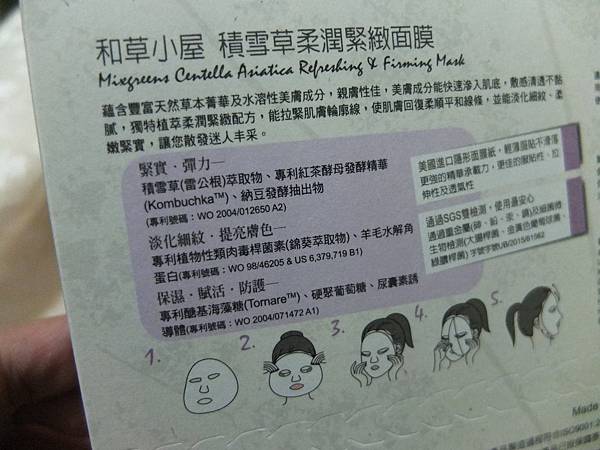 和草小屋 積雪草柔潤緊緻面膜
Mixgreens Centella Asiatica Refreshing & Firming Mask
蘊含豐富天然草本菁華及水溶性美膚成分，親膚性佳，美膚成分能快速滲入肌底，敷感清透不黏
膩，獨特植萃柔潤緊緻配方，能拉緊肌膚輪廓線，使肌膚回復柔順平和線條，並能淡化細紋、柔
嫩緊實，讓您散發迷人丰采。
緊實．彈力—
積雪草(雷公根)萃取物、專利紅茶酵母發酵精華
(Kombuchka™)、納豆發酵抽出物
(專利號碼：WO 2004/012650 A2)
淡化細紋．提亮膚色—
專利植物性類肉毒桿菌素(錦葵萃取物)、羊毛水解角
蛋白(專利號碼：WO 98/46205 & US 6,379,719 B1)
保濕．賦活．防護—
專利醣基海藻糖(Tornare™)、硬聚葡萄糖、尿囊素誘
導體(專利號碼：WO 2004/071472 A1)
美國進口隱形面膜紙，輕薄服貼不滑落
更強的精華承載力，更佳的服貼性、拉
伸性及透氣性
通過SGS雙檢測，使用最安心
通過重金屬(砷、鉛、汞、鎘)及細菌微
生物檢測(大腸桿菌、金黃色葡萄球菌、
綠膿桿菌) 字號字號UB/2015/61562
1.
2.
3.
4.
5.
Made